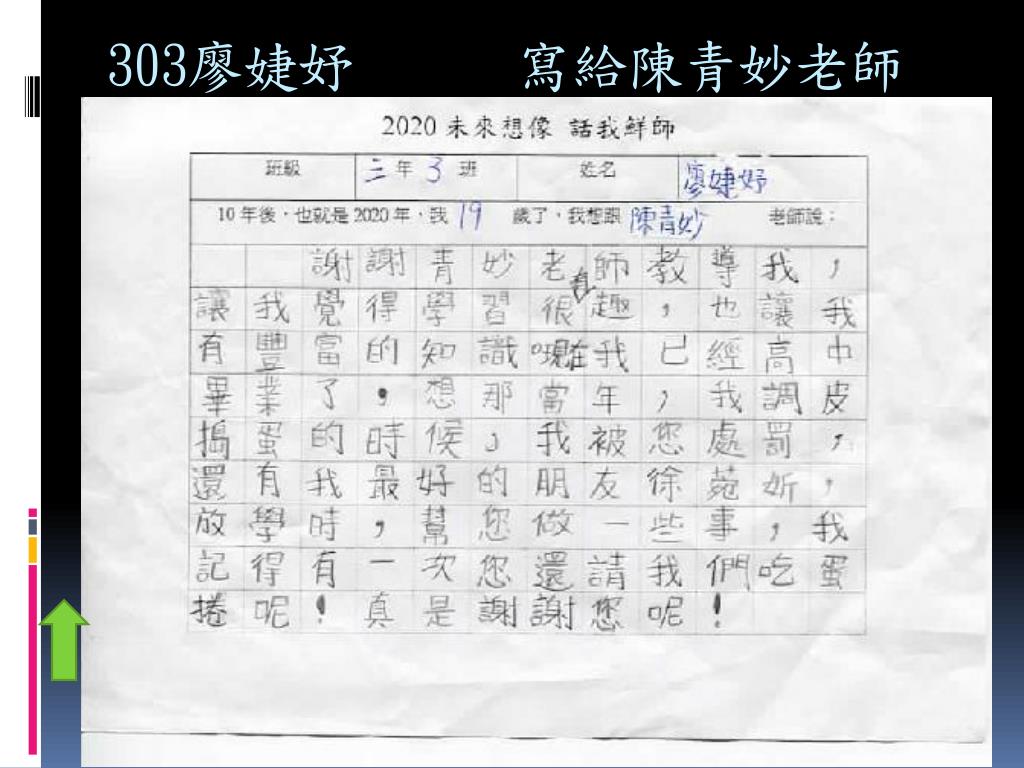 303廖婕妤 寫給陳青妙老師
2020 未來想像 話我鮮師
班級 三年 3 班 姓名 廖婕妤
10 年後，也就是 2020 年，我 19 歲了，我想跟 陳青妙 老師說：
謝謝青妙老師教導我，
讓我覺得學習很有趣，也讓我
有豐富的知識，現在我已經高中
畢業了，想那當年，我調皮
搗蛋的時候，我被您處罰，
還有我最好的朋友徐菀妡，
放學時，幫您做一些事，我
記得有一次您還請我們吃蛋
捲呢！真是謝謝您呢！